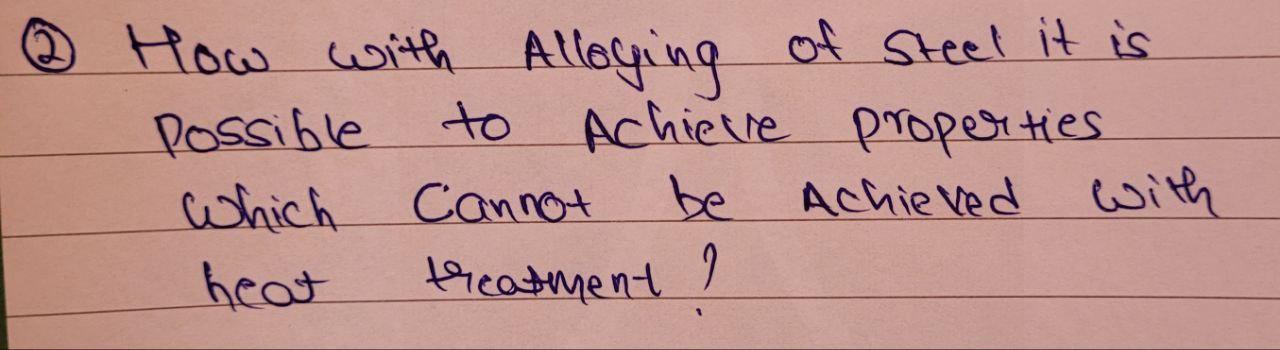 ② How with Alloying of Steel it is
possible to Achieve properties
which Cannot be Achieved with
heat treatment ?